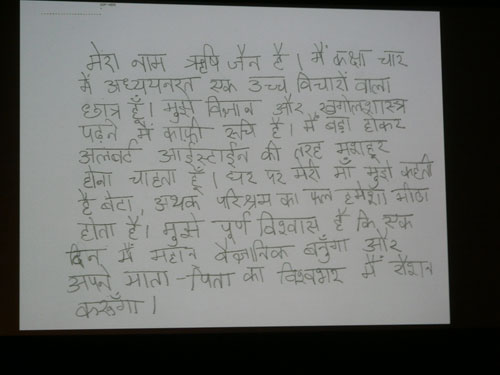 मेरा नाम ऋषि जैन है। मैं कक्षा चार
में अध्ययनरत एक उच्च विचारों वाला
छात्र हूँ। मुझे विज्ञान और खगोलशास्त्र
पढ़ने में काफ़ी रुचि है। मैं बड़ा होकर
अलबर्ट आइंस्टाईन की तरह मशहूर
होना चाहता हूँ। घर पर मेरी माँ मुझे कहती
है बेटा, अथक परिश्रम का फल हमेशा मीठा
होता है। मुझे पूर्ण विश्वास है कि एक
दिन मैं महान वैज्ञानिक बनुँगा और
अपने माता-पिता का विश्वभर में रौशन
करूँगा।